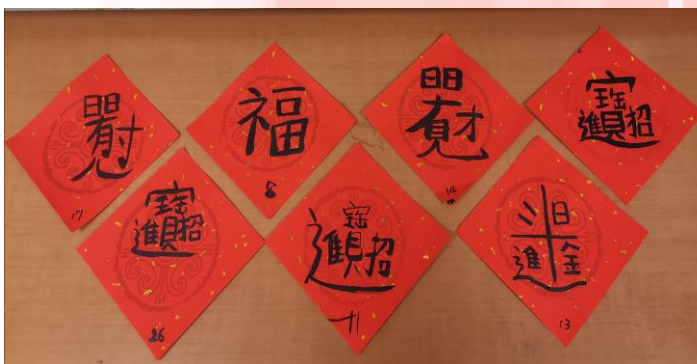 日日有見財
17
福
8
日日有見財
14
招財進寶
招財進寶
26
招財進寶
11
日進斗金
13